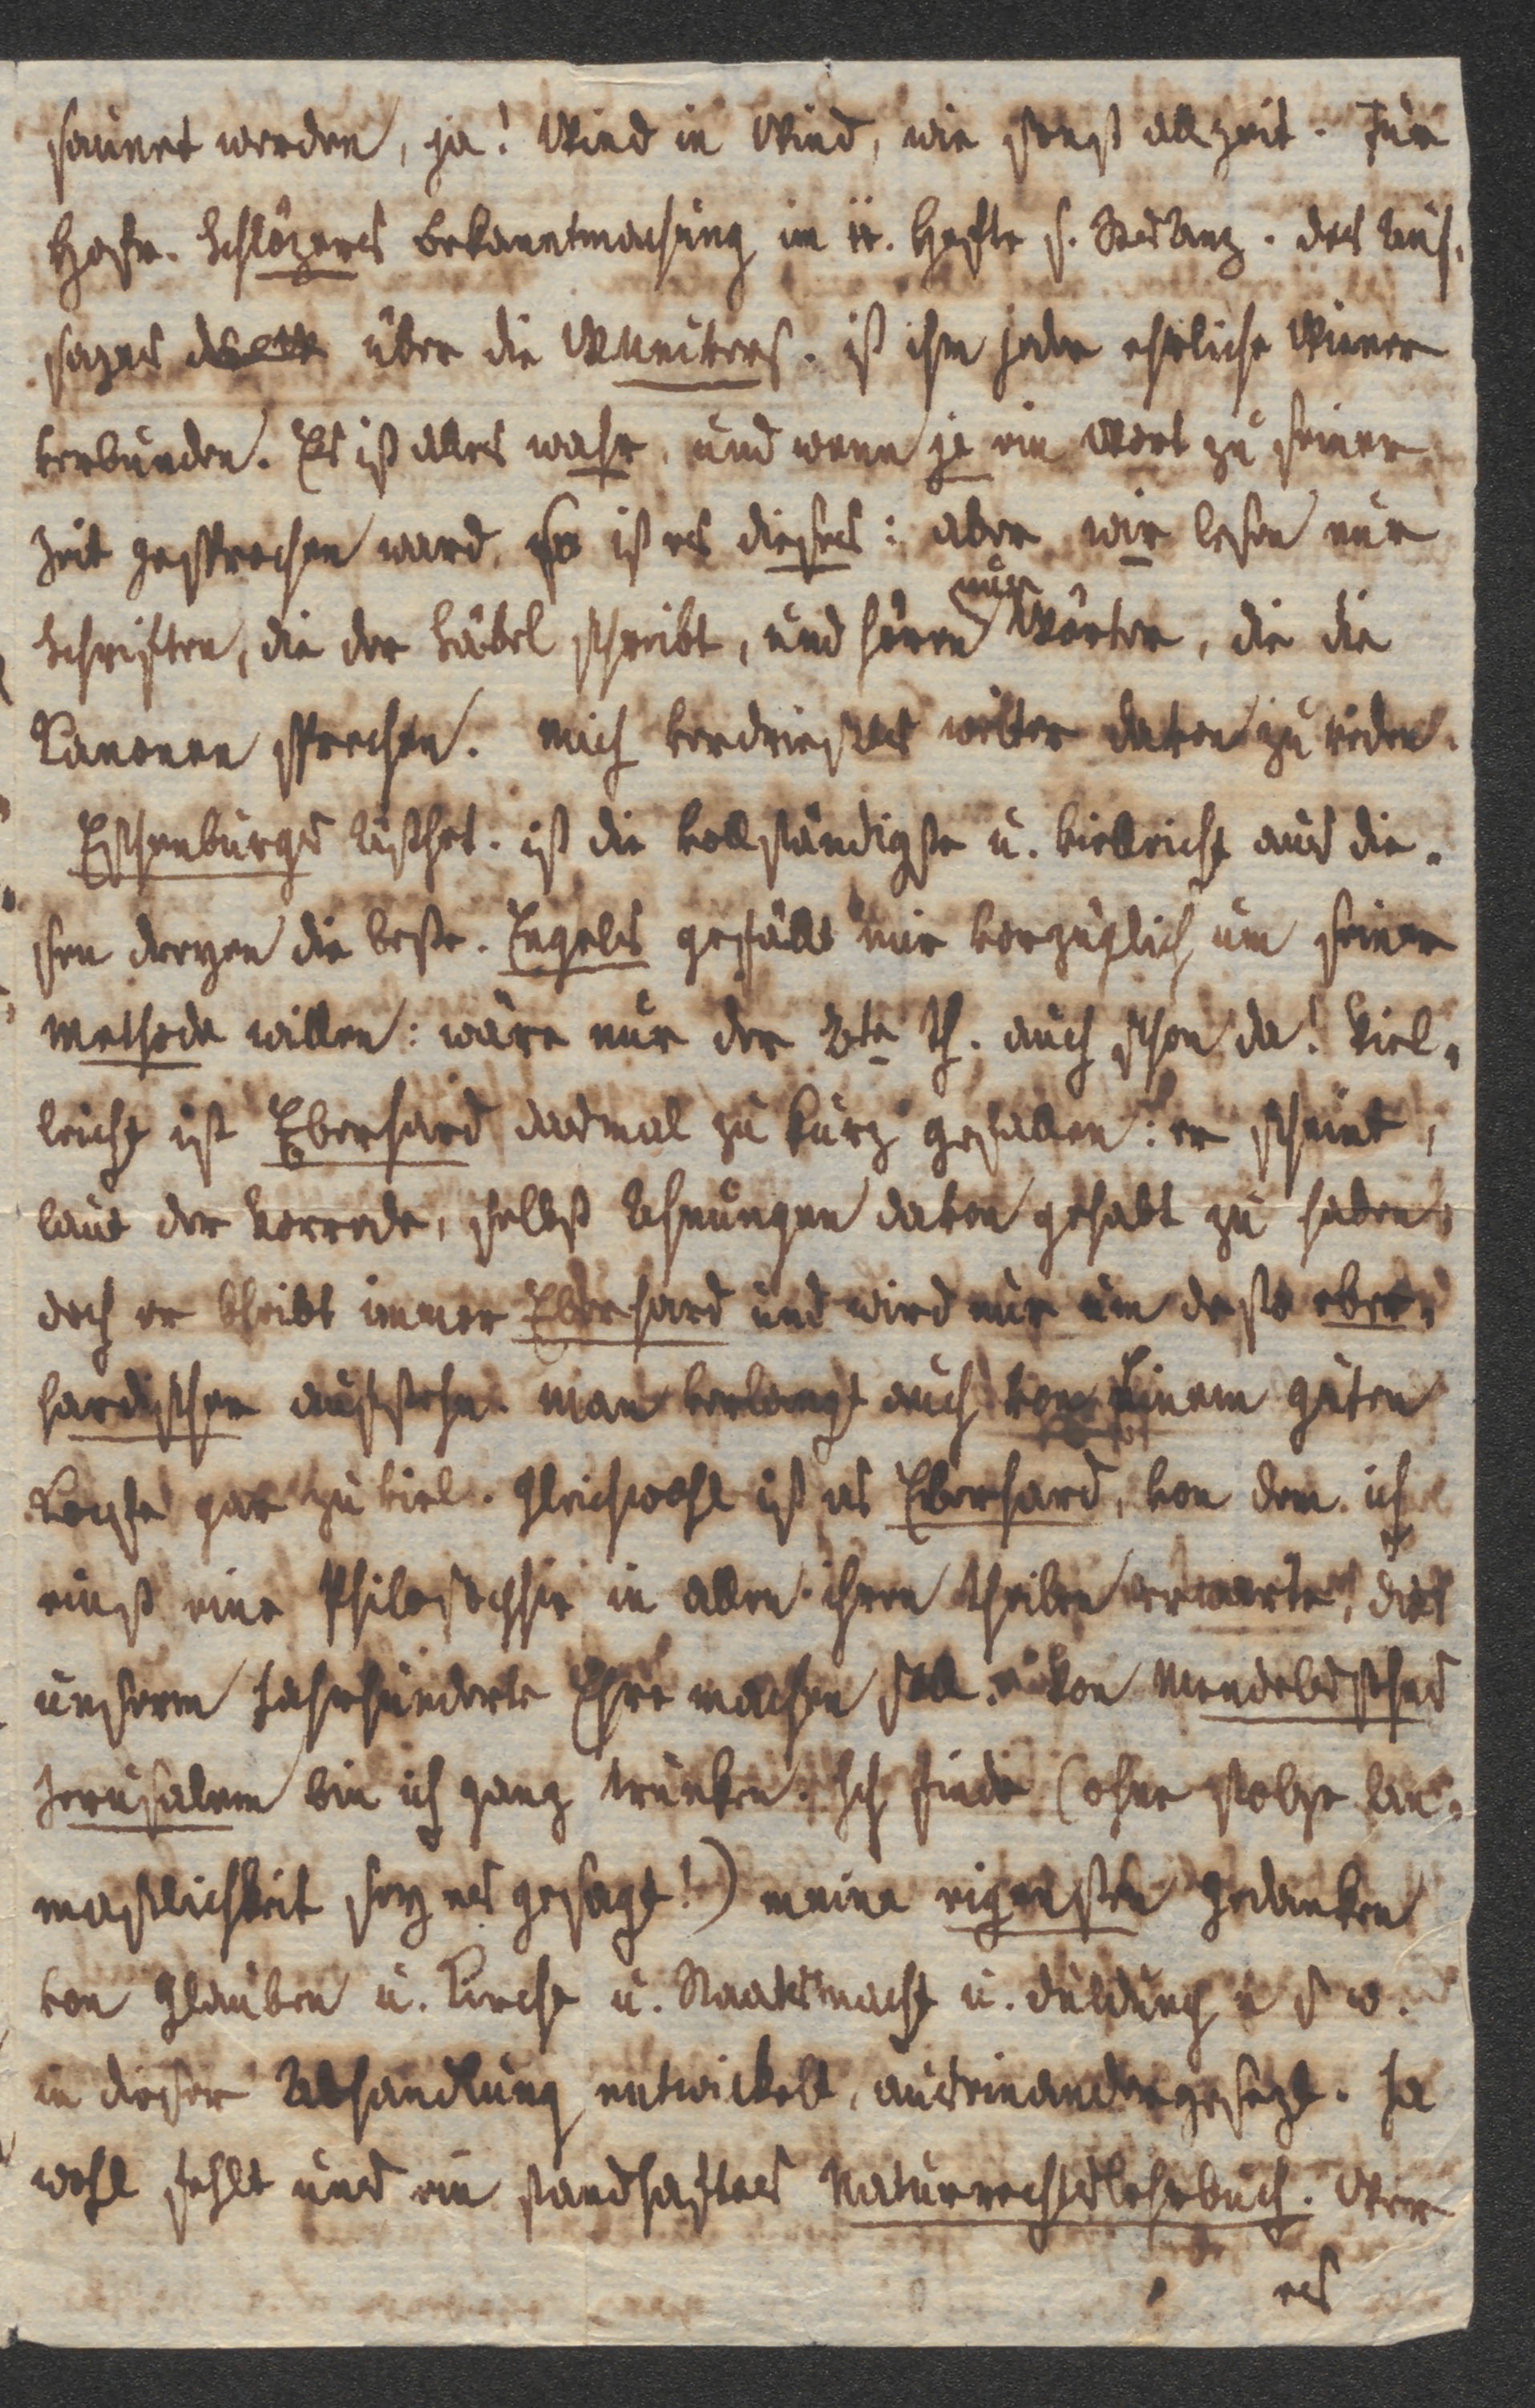 saunet werden, ja! Wind in Wind, wie sonst allzeit. Für
Hofr. Schlözers Bekanntmachung im ii. Hefte s. StsAnz. des Auf-
sazes über die WMeckers. ist ihm jeder ehrliche Wiener
verbunden. Es ist alles wahr, und wenn je ein Wort zu seiner
Zeit gesprochen ward, so ist es dieses: aber wir lesen nur
Schriften, die der Säbel schreibt, und hören nur Wörter, die die
Kanonen sprechen. Mich verdriest es weiter davon zu reden.
Eschenburgs Ästhet. ist die vollständigste u. vielleicht aus die-
sen dreyen die beste. Engels gefällt mir vorzüglich um seiner
Methode willen: wäre nur der 2te Th. auch schon da! Viel-
leicht ist Eberhard dasmal zu kurz gefallen: er scheint,
laut der Vorrede, selbst Ahnungen davon gehabt zu haben,
doch er bleibt immer Eberhard und wird nur um desto eber-
hardischer aufstehn. Man verlangt auch von Einem guten
Kopfe gar zu viel. Gleichwohl ist es Eberhard, von dem ich
einst eine Philosophie in allen ihren Theilen erwarte, die
unserm Jahrhunderte Ehre machen soll. Von Mendelssohns
Jerusalem bin ich ganz trunken. Ich finde (ohne stolze An-
maslichkeit sey es gesagt!) meine eigensten Gedanken
von Glauben u. Kirche u. Staatsmacht u. Duldung u s w.
in dieser Abhandlung entwickelt, auseinandergesezt. Ja
wohl fehlt uns ein standhaftes Naturrechtslehrbuch. Wer
es